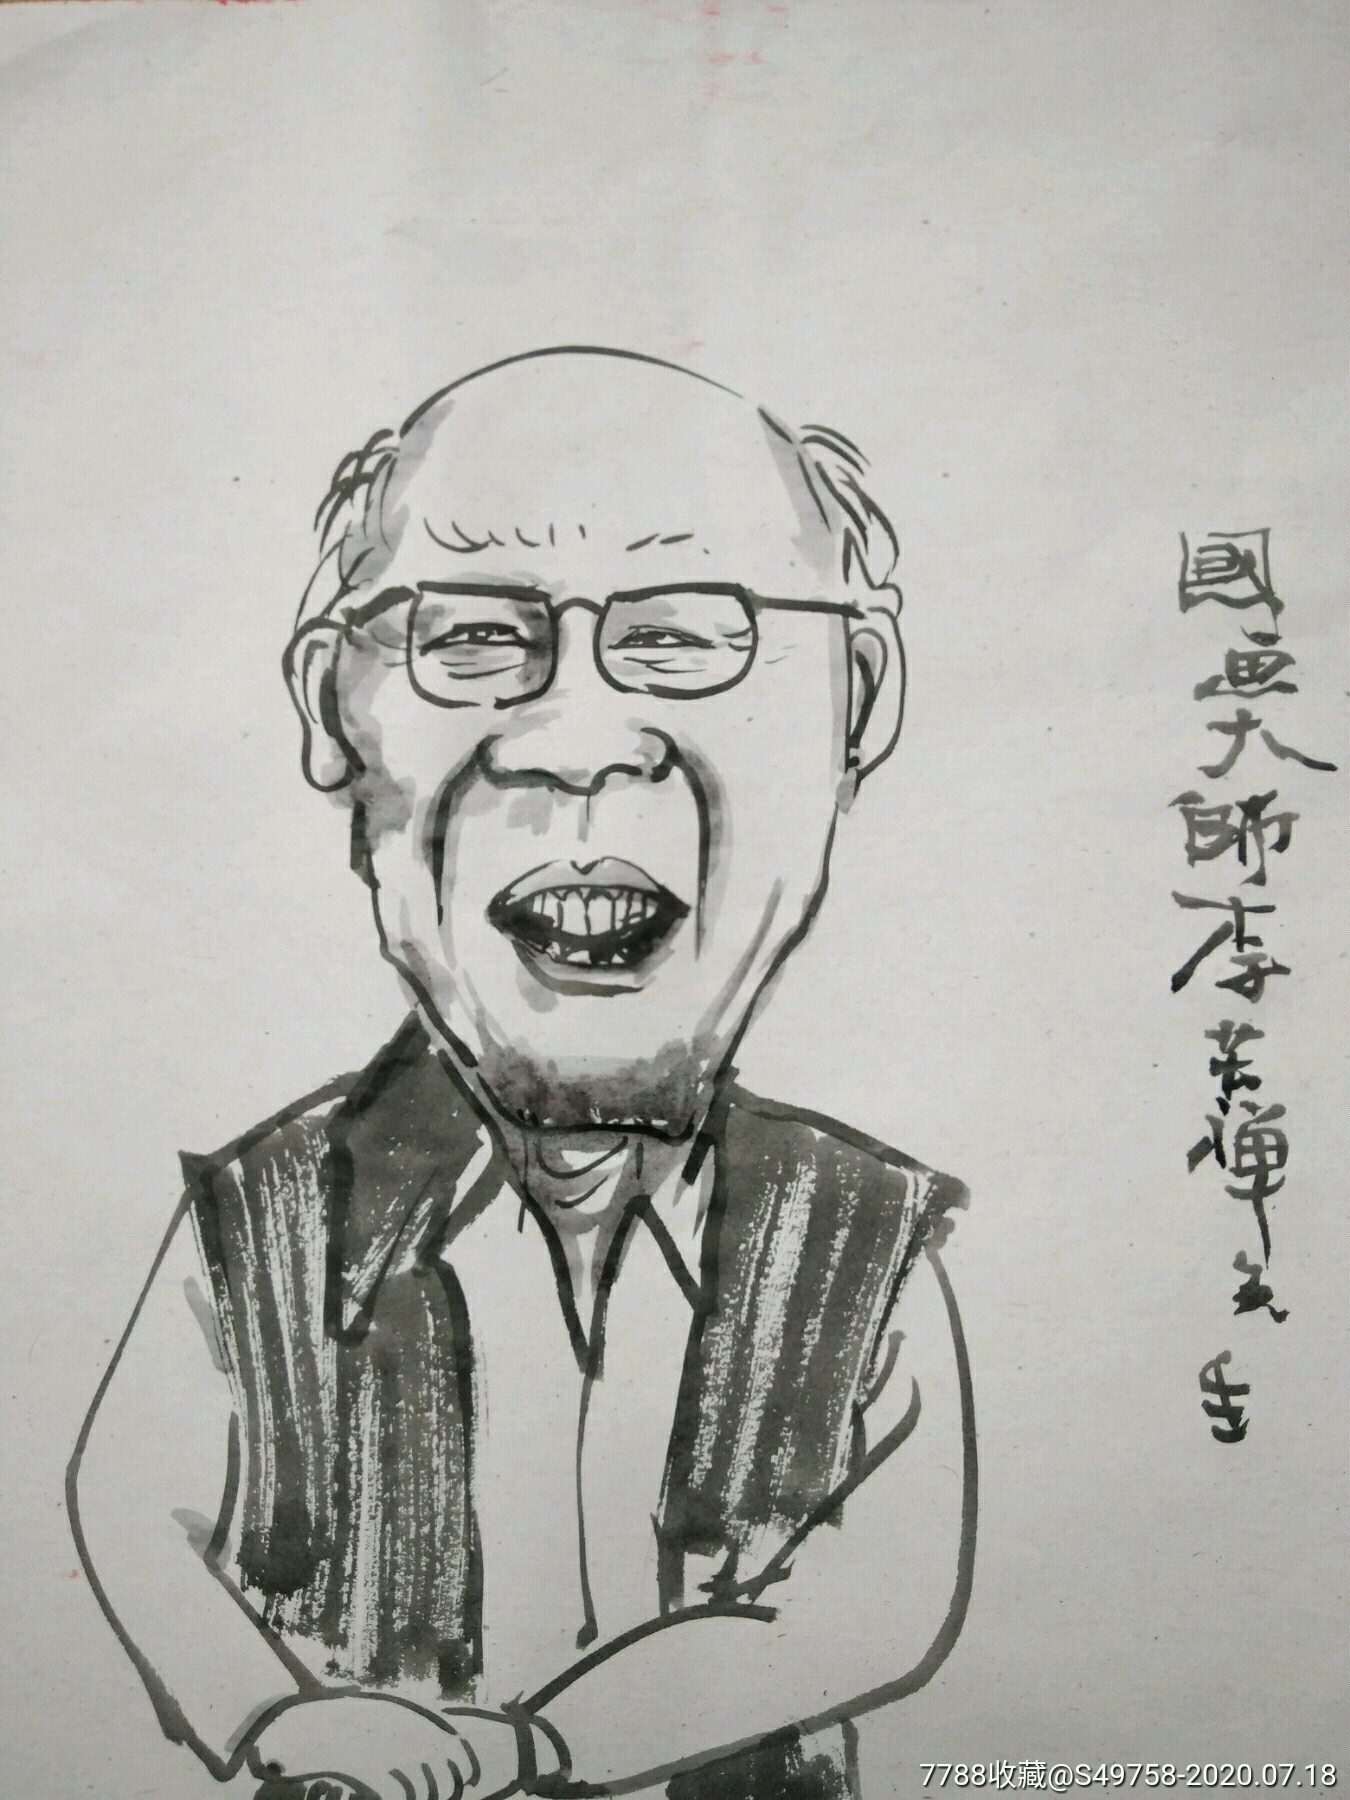 國画大師李苦禅先生
7788收藏@S49758-2020.07.18